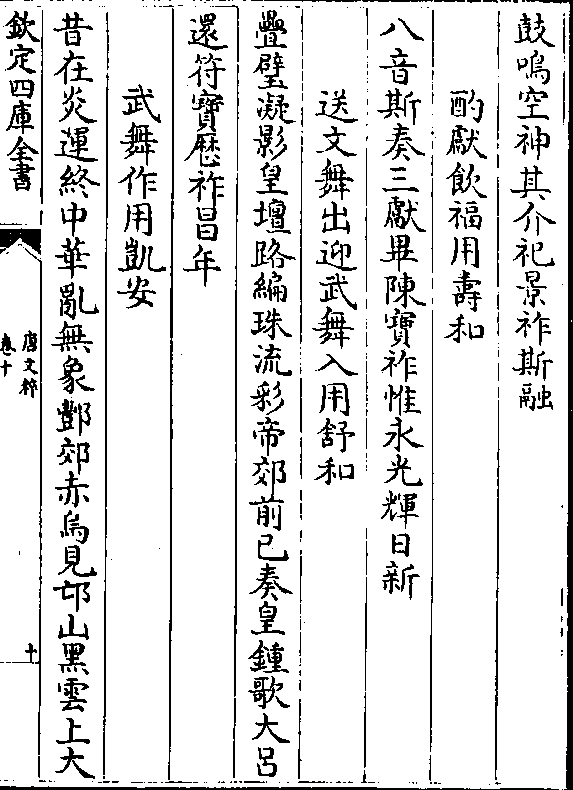 鼓鳴空神其介祀景祚斯融
酌獻飲福用壽和
八音斯奏三獻畢陳寶祚惟永光輝日新
送文舞出迎武舞入用舒和
疊璧凝影皇壇路編珠流彩帝郊前已奏皇鍾歌大呂
還符寶歷祚昌年
武舞作用凱安
昔在炎運終中華亂無象酆郊赤烏見邙山黑雲上大
欽定四庫全書
唐文粹
卷十
十